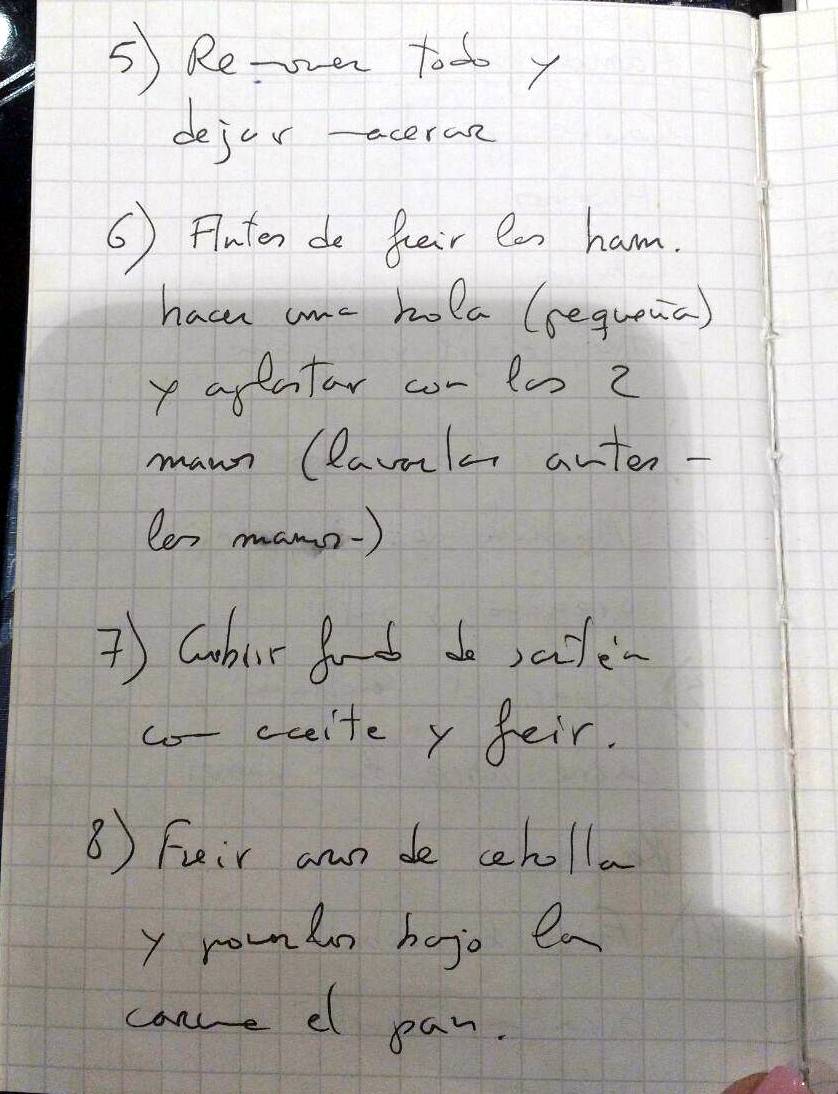 5) Remover todo y
dejar macerar
6) Antes de freir las ham.
hacer una bola (pequeña)
y aplastar con las 2
manos (lavarlas antes -
las manos-)
7) Cubrir fondo de sartén
con aceite y freir.
8) Freir aros de cebolla
y ponerlos bajo la
carne el pan.